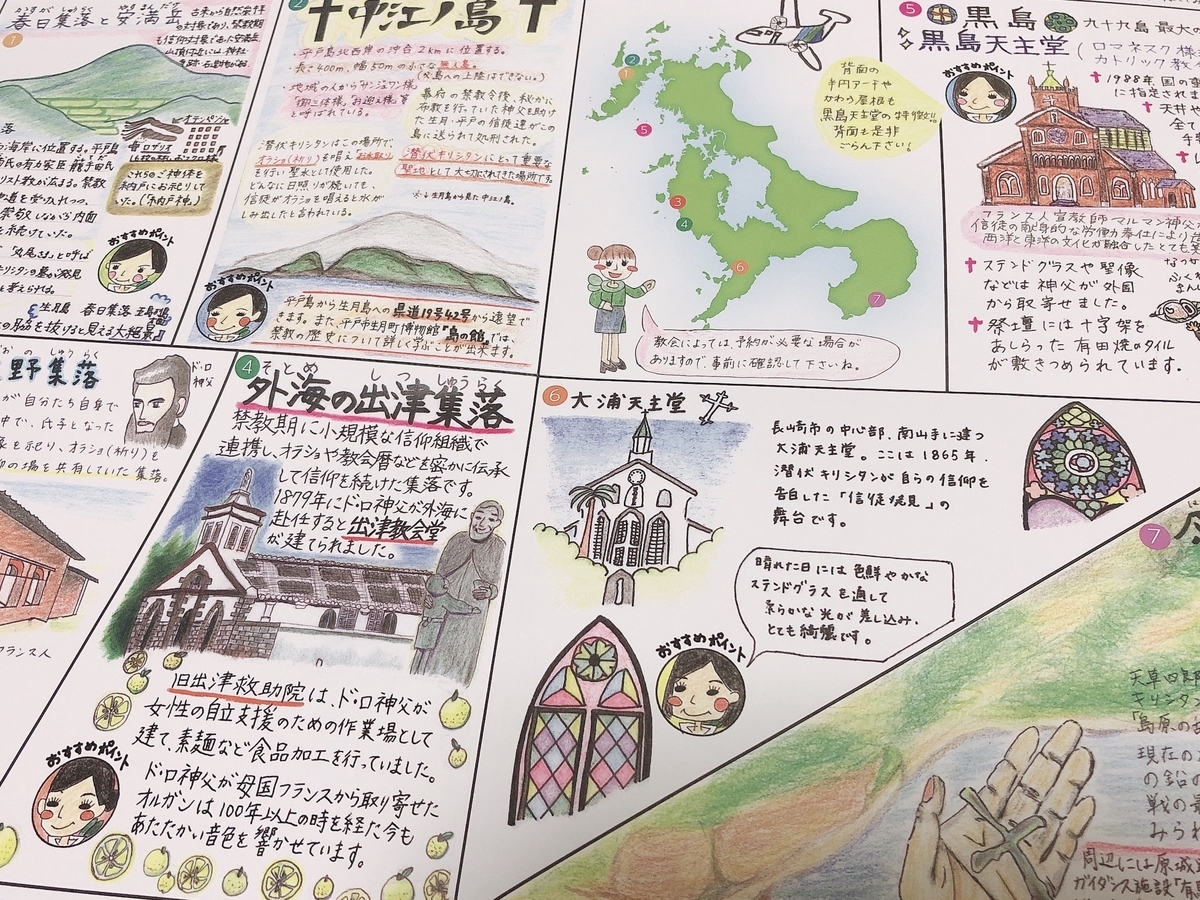 かすが しゅうらく やすまんだけ
春日集落と安満岳
古来から自然崇拝
の対象であり、禁教期
も信仰対象であった安満岳
山頂付近には神社
1
オテンペンシャ
ロザリオ
これらのご神体を
納戸にお祀りして
いた。(「納戸神」)
海岸に位置する。平戸島
氏の有力家臣 籠手田氏
リスト教が広まる。禁教
を受け入れつつ、
禁教しながら内面
を続けていた。
「丸尾さま」と呼ば
キリシタンの墓の発見
と考えられる。
おすすめポイント
生月島 春日集落
の脇を抜けると見える大絶景
2
中江ノ島
・平戸島北西岸の沖合2kmに位置する。
長さ400m、幅50mの小さな無人島。
(※島への上陸はできない。)
・地域の人からサンジュワン様、
「御三体様」「お迎え様」等
と呼ばれている。
幕府の禁教令後、秘かに
布教を行っていた神父を助け
た生月・平戸の信徒達がこの
島に送られて処刑された。
潜伏キリシタンはこの場所で、
オラショ(祈り)を唱え お水取り
を行い聖水として使用した。
どんなに日照りが続いても、
信徒がオラショを唱えると水が
しみ出したと言われている。
潜伏キリシタンにとって重要な
聖地として大切にされてきた場所です。
※↓生月島から見た中江ノ島。
おすすめポイント
平戸島から生月島への県道19号42号から遠望で
きます。また、平戸市生月町博物館「島の館」では、
禁教の歴史について詳しく学ぶことが出来ます。
2
1
5
3
4
6
7
背面の
半円アーチや
かわら屋根も
黒島天主堂の特徴だよ!!
背面も是非
ごらん下さい!
教会によっては、予約が必要な場合が
ありますので、事前に確認して下さいね。
5
黒島
九十九島 最大の
黒島天主堂
(ロマネスク様
カトリック教
おすすめポイント
1988年 国の重
に指定されま
天井や
全て
手
フランス人宣教師マルマン神父が
信徒の献身的な労働力奉仕により
西洋と東洋の文化が融合したとても美
ステンドグラスや聖像
などは神父が外国
から取寄せました。
祭壇には十字架を
あしらった有田焼のタイル
が敷きつめられています。
しゅうらく
野集落
ド・ロ
神父
が自分たち自身で
中で、氏子となった
を祀り、オラショ(祈り)も
の場を共有していた集落。
フランス人
4
そとめ しつ しゅうらく
外海の出津集落
禁教期に小規模な信仰組織で
連携し、オラショや教会暦などを密かに伝承
して信仰を続けた集落です。
1879年にド・ロ神父が外海に
赴任すると出津教会堂
が建てられました。
旧出津救助院は、ド・ロ神父が
女性の自立支援のための作業場として
建て、素麺など食品加工を行っていました。
おすすめポイント
ド・ロ神父が母国フランスから取り寄せた
オルガンは100年以上の時を経た今も
あたたかい音色を響かせています。
6
大浦天主堂
長崎市の中心部、南山手に建つ
大浦天主堂。ここは1865年、
潜伏キリシタンが自らの信仰を
告白した「信徒発見」の
舞台です。
晴れた日には色鮮やかな
ステンドグラスを通して
柔らかな光が差し込み、
とても綺麗です。
おすすめポイント
7
天草四郎
キリシタン
「島原の
現在の
の鉛の
戦の
みられ
周辺には原城
ガイダンス施設「有馬